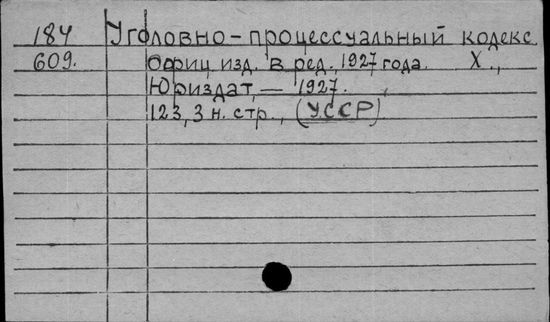 184 Уголовно-процессуальный кодекс.
609. Офиц. изд. в ред. 1927 года. Х.,
Юриздат, — 1927.
123, 3 н. стр., (УССР)